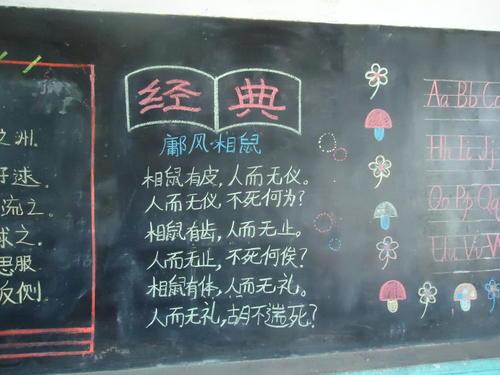 之洲.
好逑.
流之.
求之.
思服
反侧
经典
鄘风·相鼠
相鼠有皮,人而无仪。
人而无仪,不死何为?
相鼠有齿,人而无止。
人而无止,不死何俟?
相鼠有体,人而无礼。
人而无礼,胡不遄死?
Aa Bb Cc
Hh Ii Jj
Oo Pp Qq
Uu Vv W